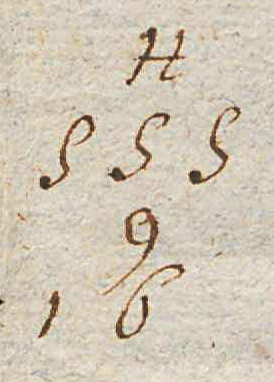 H
S S S
9
1 6